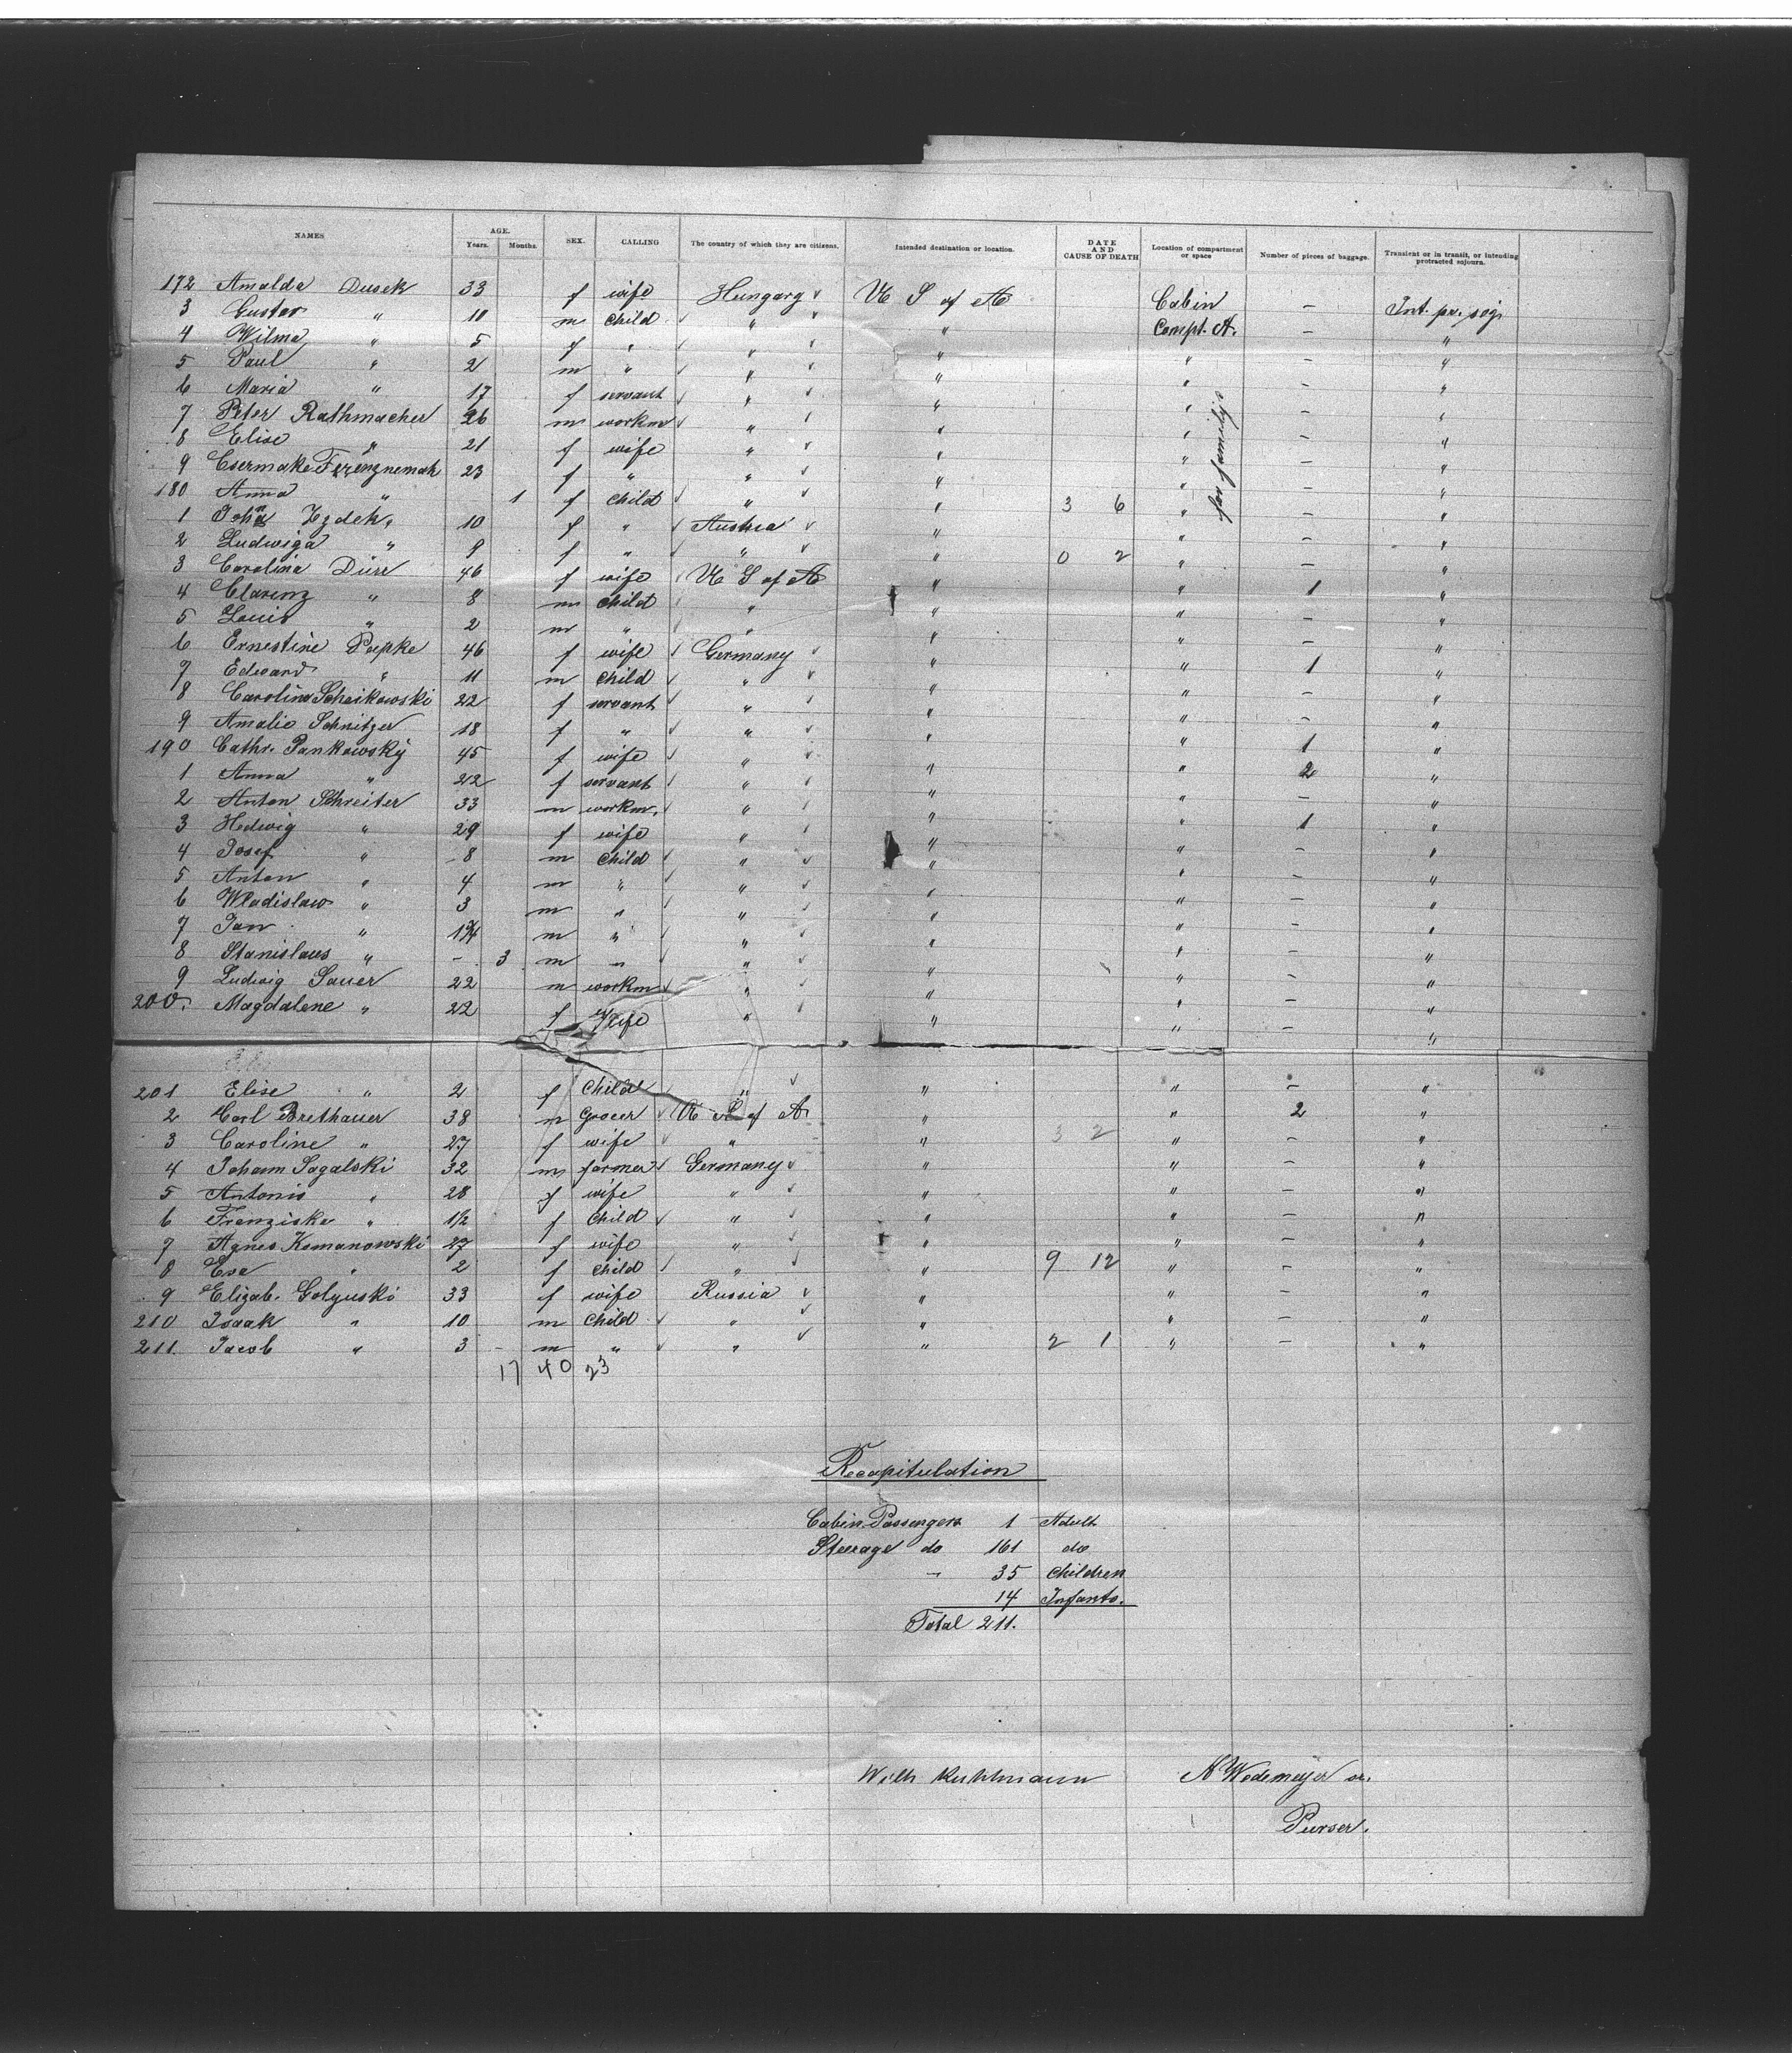 NAMES AGE. Years. Months. SEX. CALLING The country of which they are citizens. Intended destination or location. DATE AND CAUSE OF DEATH Location of compartment or space Number of pieces of baggage. Transient or in transit, or intending protracted sojourn.
172 Amalda Dusek 33 f wife Hungary U S of A Cabin – Int. pr. soj.
3 Gustav " 10 m child " " Compt. A. – "
4 Wilma " 5 f " " " " – "
5 Paul " 2 m " " " " – "
6 Maria " 17 f servant " " " – "
7 Peter Rathmacher 26 m workm " " " – "
8 Elise " 21 f wife " " " – "
9 Csermake Ferenznemak 23 f " " " " – "
180 Anna " 1 f child " " 3 6 " – "
1 Joha Zzdek 10 f " Austria " " – "
2 Ludwiga " 9 f " " " 0 2 " – "
3 Carolina Dürr 46 f wife U S of A " " 1 "
4 Clarenz " 8 m child " " " – "
5 Louis " 2 m " " " " – "
6 Ernestine Papke 46 f wife Germany " " 1 "
7 Edward " 11 m child " " " – "
8 Carolina Schaikowski 22 f servant " " " – "
9 Amalie Schnitzer 18 f " " " " 1 "
190 Cathr. Pankowsky 45 f wife " " " 2 "
1 Anna " 22 f servant " " " – "
2 Anton Schreiter 33 m workm. " " " 1 "
3 Hedwig " 29 f wife " " " – "
4 Josef " 8 m child " " " – "
5 Anton " 4 m " " " " – "
6 Wladislaw " 3 m " " " " – "
7 Jan " 1¾ m " " " " – "
8 Stanislaus " – 3 m " " " " – "
9 Ludwig Sauer 22 m workm " " " – "
200. Magdalene " 22 f wife " " " – "
for families
201 Elise " 2 f child " " " – "
2 Carl Brethauer 38 m grocer U S of A " " 2 "
3 Caroline " 27 f wife " " 3 2 " – "
4 Johann Sagalski 32 m farmer Germany " " – "
5 Antonie " 28 f wife " " " – "
6 Franziska " 1/2 f child " " " – "
7 Agnes Komanowski 27 f wife " " " – "
8 Eva " 2 f child " " 9 12 " – "
9 Elizab. Golyuski 33 f wife Russia " " – "
210 Isaak " 10 m child " " " – "
211. Jacob " 3 – m " " " 2 1 " – "
17 40 23
Recapitulation
Cabin Passengers 1 Adult
Steerage do 161 do
" 35 Children
14 Infants.
Total 211.
Wilh Kuhlmann A Wedemeyer sr.
Purser.